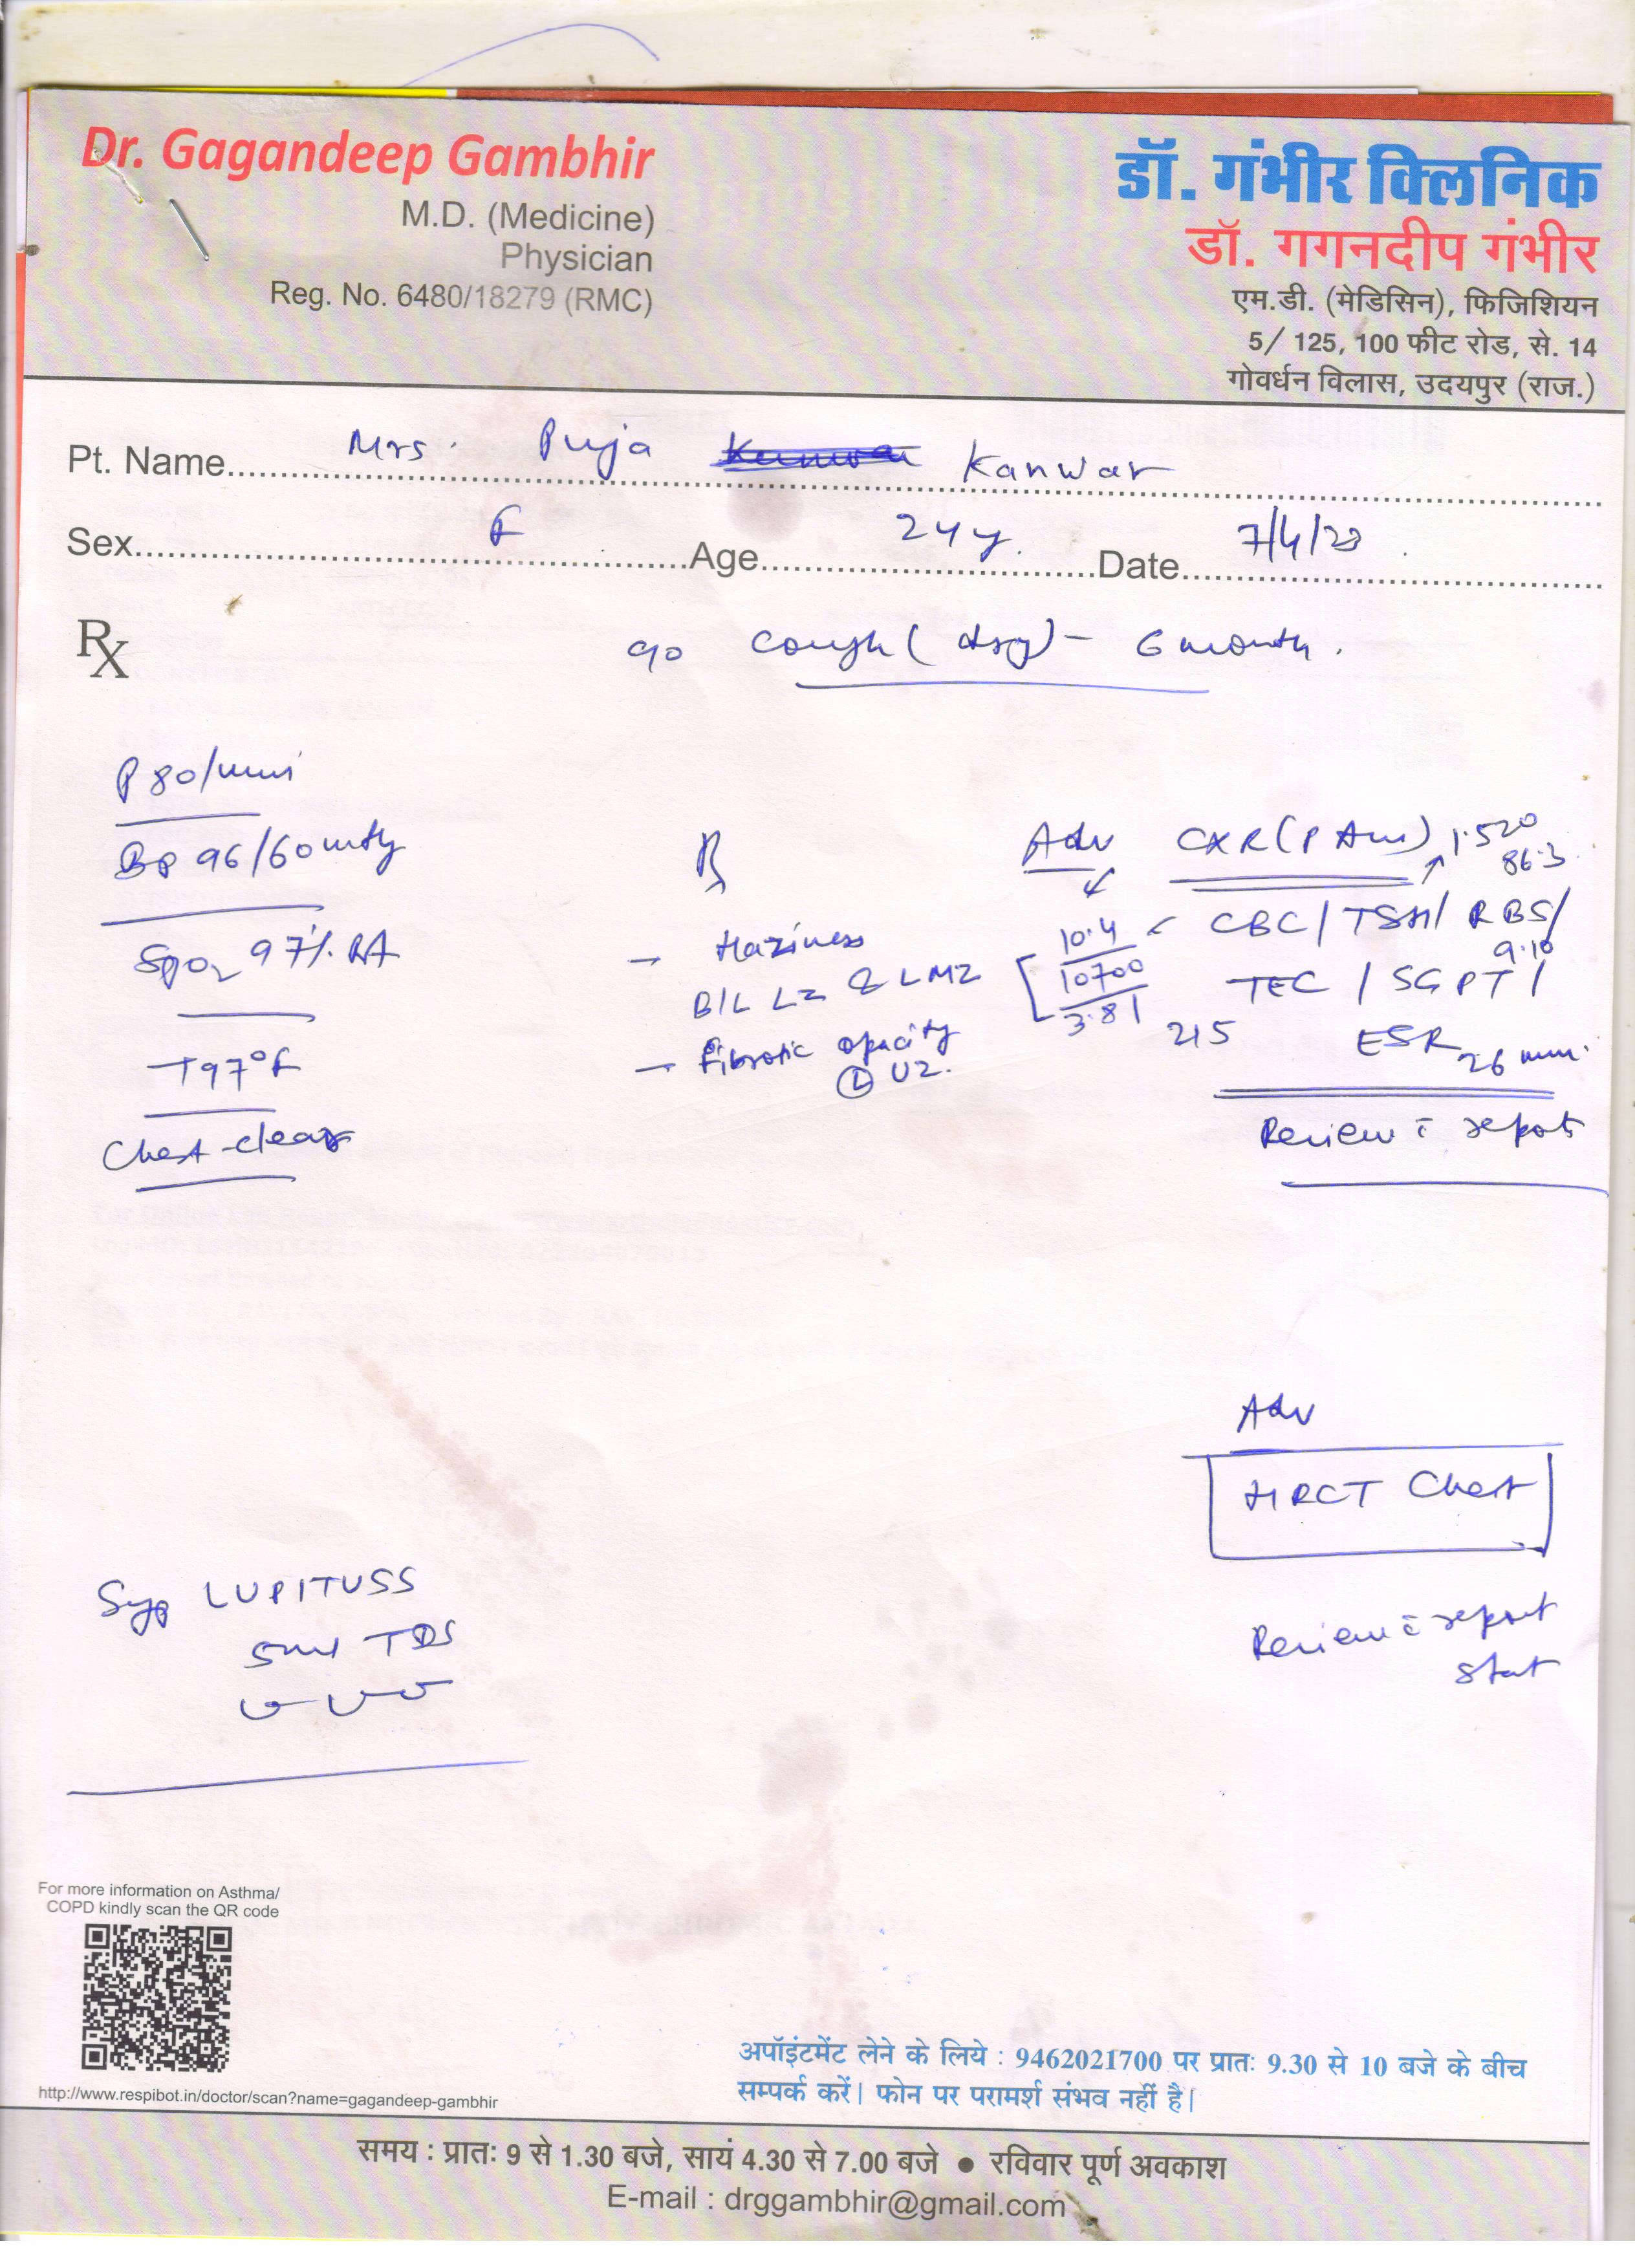 Dr. Gagandeep Gambhir
M.D. (Medicine)
Physician
Reg. No. 6480/18279 (RMC)
डॉ. गंभीर क्लिनिक
डॉ. गगनदीप गंभीर
एम.डी. (मेडिसिन), फिजिशियन
5/ 125, 100 फीट रोड, से. 14
गोवर्धन विलास, उदयपुर (राज.)
Pt. Name Mrs. Puja Kanwar
Sex F Age 24 y. Date 7/4/23
Rx
c/o Cough (dry) - 6 month.
P 80/min
BP 96/60 mmHg
SpO2 97% RA
T 97°F
Chest - clear
R
- Haziness
B/L LZ & LMZ
- Fibrotic opacity
(L) UZ.
Adv CXR (PA) 1.520
86.3
10.4 CBC / TSH / RBS /
10700 9.10
TEC / SGPT /
3.81 215 ESR 26 mm.
Review c report
Adv
HRCT Chest
Review c report
stat
Syp LUPITUSS
5ml TDS
For more information on Asthma/
COPD kindly scan the QR code
http://www.respibot.in/doctor/scan?name=gagandeep-gambhir
अपॉइंटमेंट लेने के लिये : 9462021700 पर प्रातः 9.30 से 10 बजे के बीच
सम्पर्क करें। फोन पर परामर्श संभव नहीं है।
समय : प्रातः 9 से 1.30 बजे, सायं 4.30 से 7.00 बजे ● रविवार पूर्ण अवकाश
E-mail : drggambhir@gmail.com